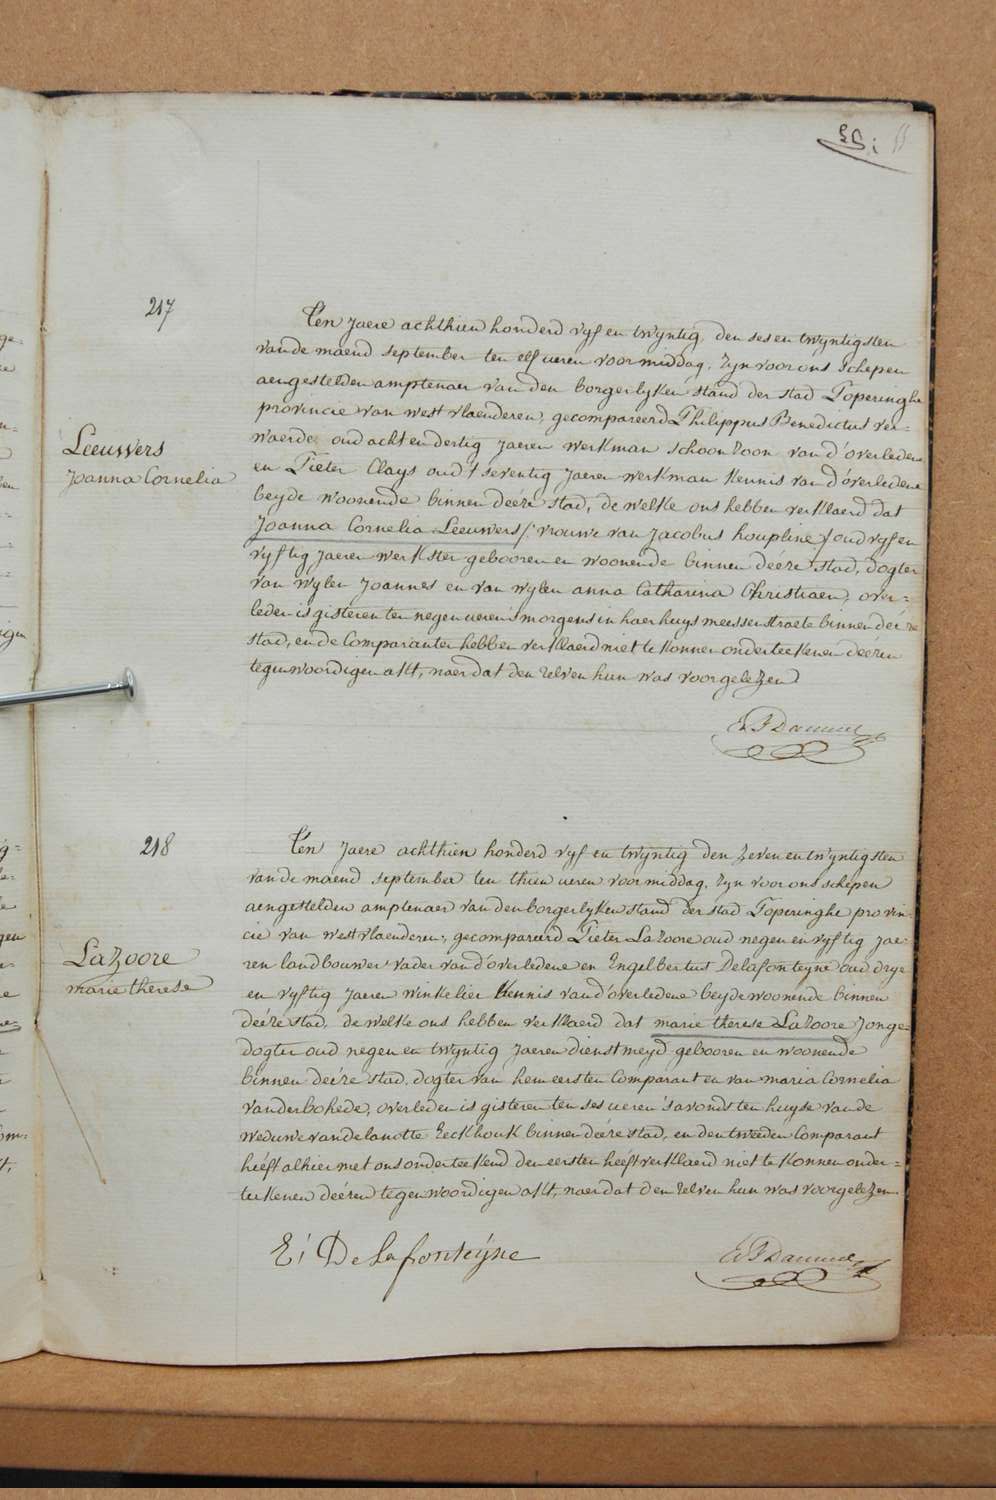 217
Leeuwers
Joanna Cornelia
Ten Jaere achthien honderd vyf en twyntig, den ses en twyntigsten
van de maend september ten elf ueren voormiddag, zyn voor ons schepen
aengestelden amptenaer van den borgerlyken stand der stad Poperinghe
provincie van west vlaenderen, gecompareerd Philippus Benedictus ver-
waerde oud acht en dertig Jaeren werkman schoonzoon van d'overledene
en Pieter Clays oud t'seventig Jaeren werkman kennis van d'overledene
beyde woonende binnen deéze stad, de welke ons hebben verklaerd dat
Joanna Cornelia Leeuwers /: vrouwe van Jacobus houpline / oud vyf en
vyftig Jaeren werkster gebooren en woonende binnen deéze stad, dogter
van wylen Joannes en van wylen anna Catharina Christiaen, over-
leden is gisteren ten negen ueren s'morgens in haer huys meessenstraete binnen deéze
stad, en de Comparanten hebben verklaerd niet te konnen onderteekenen deézen
tegenwoordigen akt, naer dat den zelven hun was voorgelezen
218
LaZoore
marie therese
Ten Jaere achthien honderd vyf en twyntig den zeven en twyntigsten
van de maend september ten thien ueren voormiddag, zyn voor ons schepen
aengestelden amptenaer van den borgerlyken stand der stad Poperinghe provin-
cie van westvlaenderen, gecompareerd Pieter LaZoore oud negen en vyftig Jae-
ren landbouwer vader van d'overledene en Engelbertus Delafonteyne oud drye
en vyftig Jaeren winkelier kennis van d'overledene beyde woonende binnen
deéze stad, de welke ons hebben verklaerd dat marie therese LaZoore Jonge-
dogter oud negen en twyntig Jaeren dienstmeyd gebooren en woonende
binnen deéze stad, dogter van hem eersten Comparant en van maria Cornelia
vanderbohede, overleden is gisteren ten ses ueren s'avonds ten huyse van de
weduwe vandelanotte Eeckhouk binnen deéze stad, en den tweeden Comparant
heéft alhier met ons onderteekend den eersten heeft verklaerd niet te konnen onder-
teekenen deézen tegenwoordigen akt, naer dat den zelven hun was voorgelezen
E: De Lafonteÿne